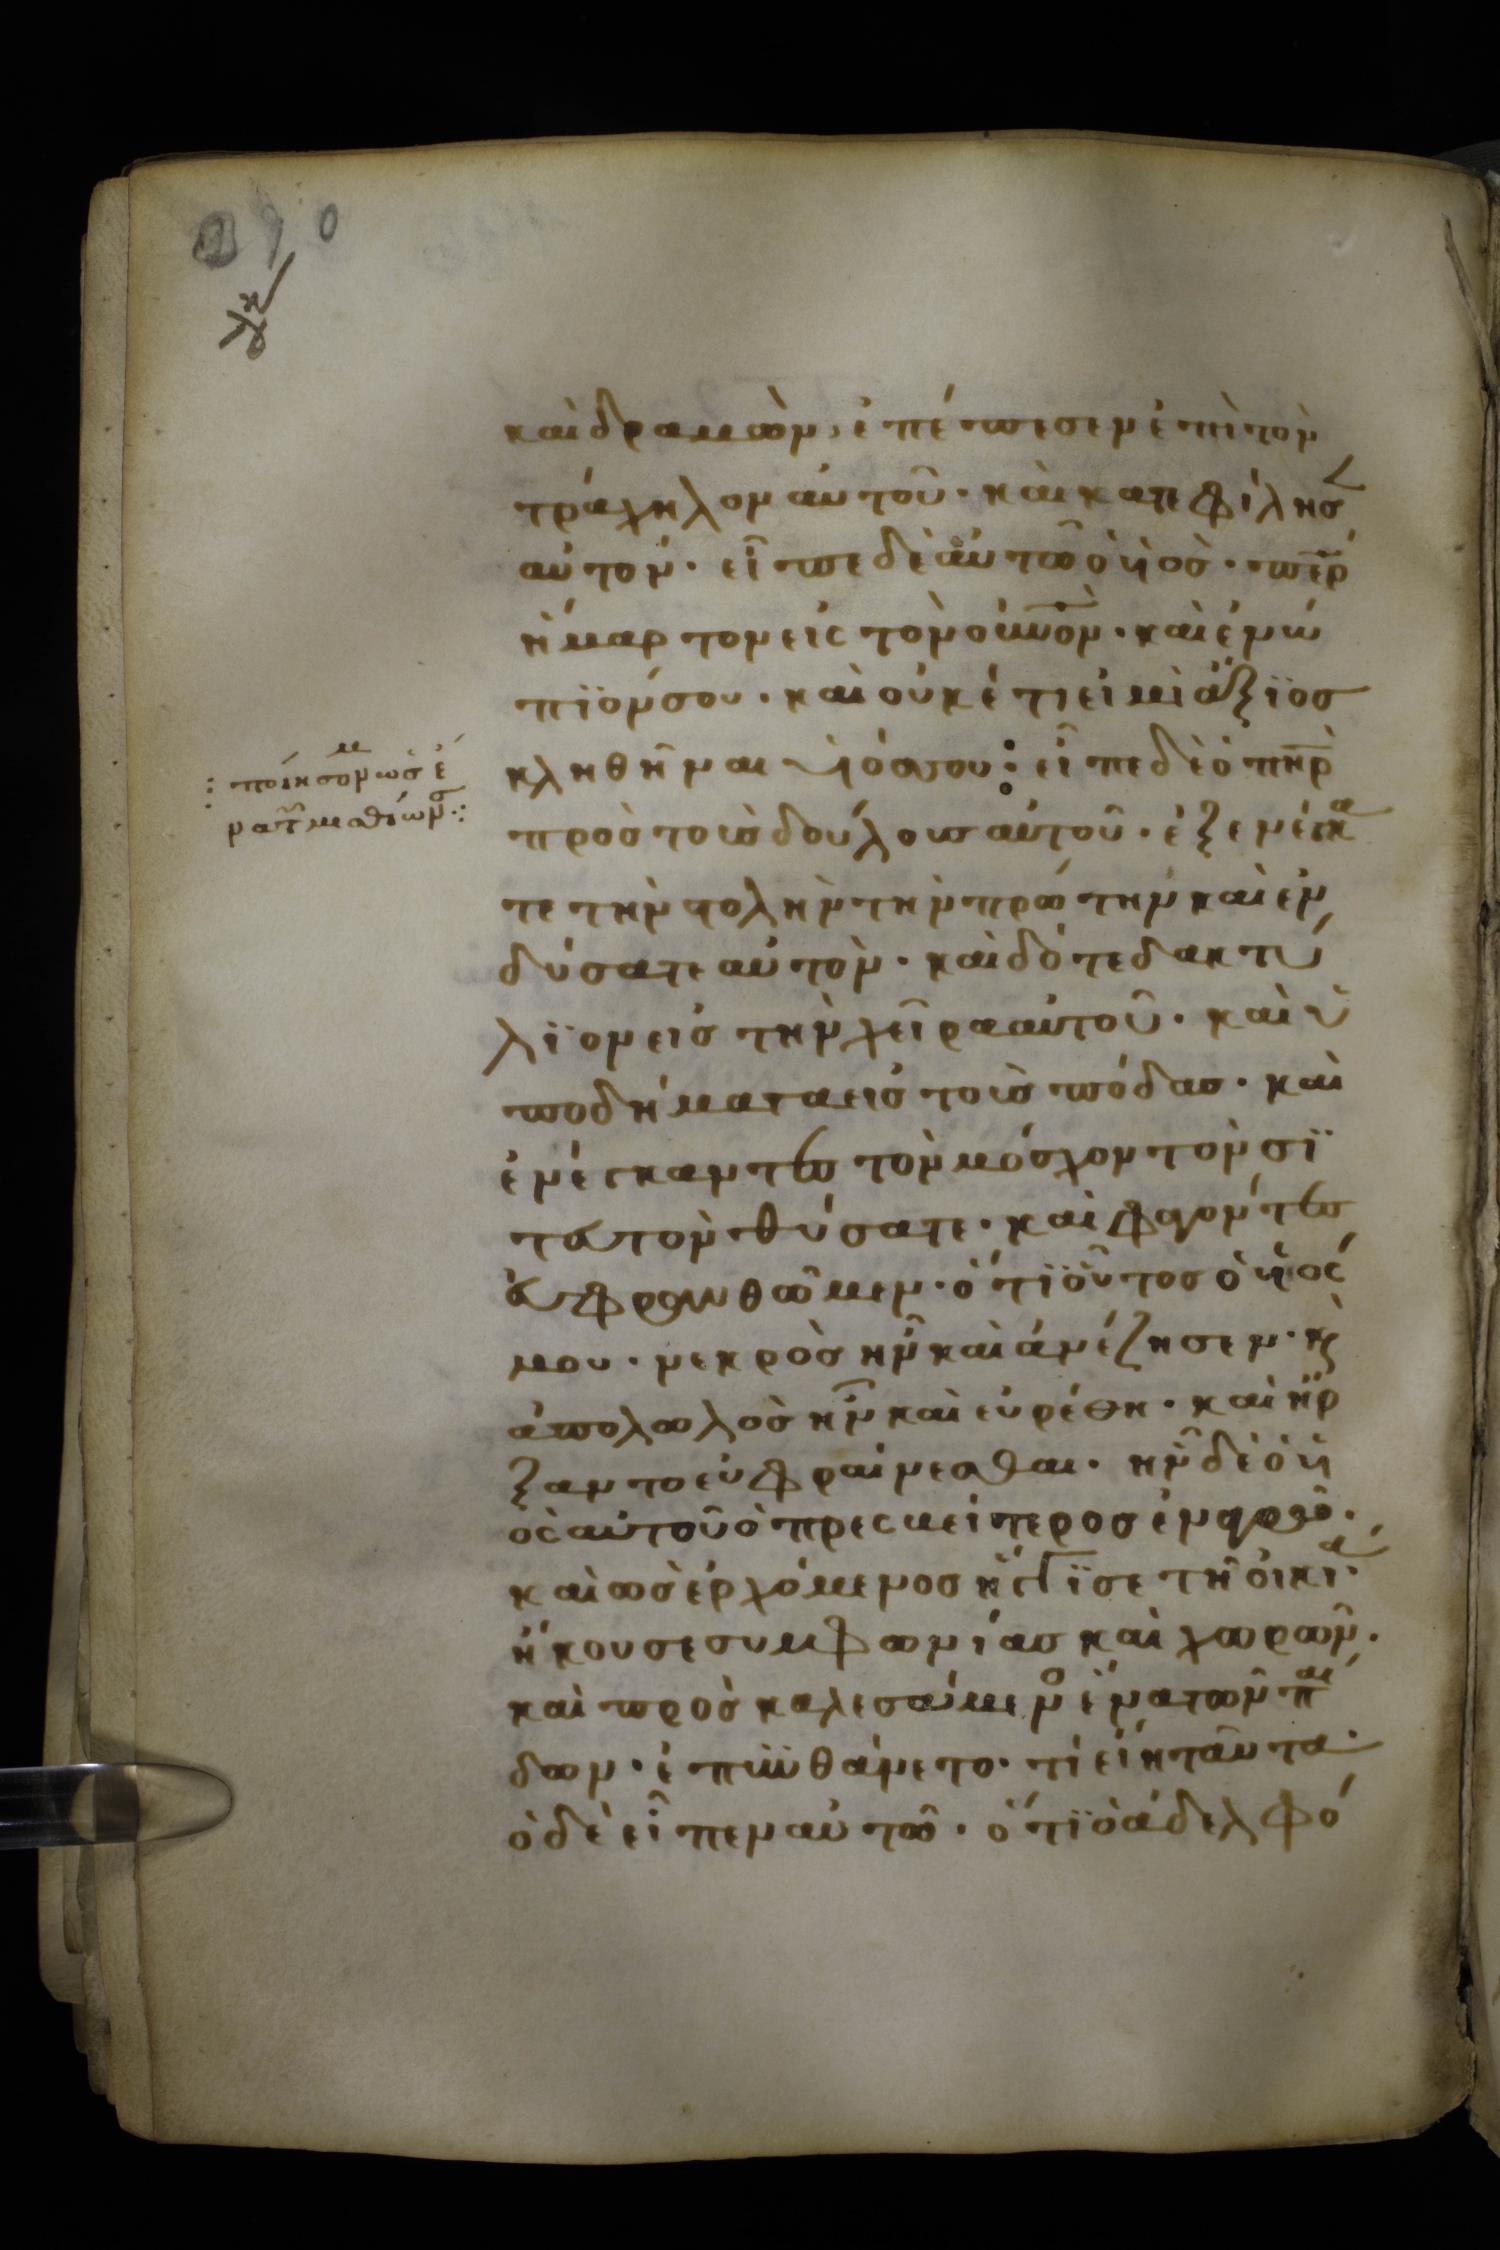 390
καὶ δραμὼν, ἐπέπεσεν ἐπὶ τὸν
τράχηλον αὐτοῦ· καὶ κατεφίλησ
αὐτόν· εἶπε δὲ αὐτῶ ὁ ὑιὸσ· περ
ἥμαρτον εἰς τὸν οὐνὸν· καὶ ἐνώ
πϊόν σου· καὶ οὐκέτι εἰμὶ ἄξϊοσ
κληθῆναι ὑιόσ σου: εἶπε δὲ ὁ πηρ
ποίησόν μ ὡσ ἕ
να τ μισθίων σ
πρὸσ τοὺσ δούλουσ αὐτοῦ· ἐξενέγκα
τε τὴν στολὴν τὴν πρώτην καὶ ἐν
δύσατε αὐτὸν· καὶ δότε δακτύ
λϊον εισ τὴν χεῖρα αὐτοῦ· καὶ ὑ
ποδήματα εισ τοὺσ πόδασ· καὶ
ἐνέγκαντεσ τὸν μόσχον τὸν σϊ
τευτὸν θύσατε· καὶ φαγόντεσ
εὐφρανθῶμεν· ὅτϊ οὗτοσ ὁ ὑιός
μου· νεκρὸσ ἦν καὶ ἀνέζησεν· κ
ἀπολωλὸσ ἦν καὶ εὑρέθη· καὶ ἤρ
ξαντο εὐφραίνεσθαι· ἦν δὲ ὁ ὑι
ὸς αὐτοῦ ὁ πρεσβύτεροσ ἐν αγρῶ·
καὶ ὡσ ἐρχόμενοσ ἤγγϊσε τῆ οἰκία·
ἤκουσε συμφωνίασ καὶ χωρῶν·
καὶ προσκαλεσάμενο ἕνα τῶν παί
δων· ἐπϋνθάνετο· τί εἴη ταῦτα·
ὁ δὲ εἶπεν αὐτῶ· ὅτϊ ὁ ἀδελφό